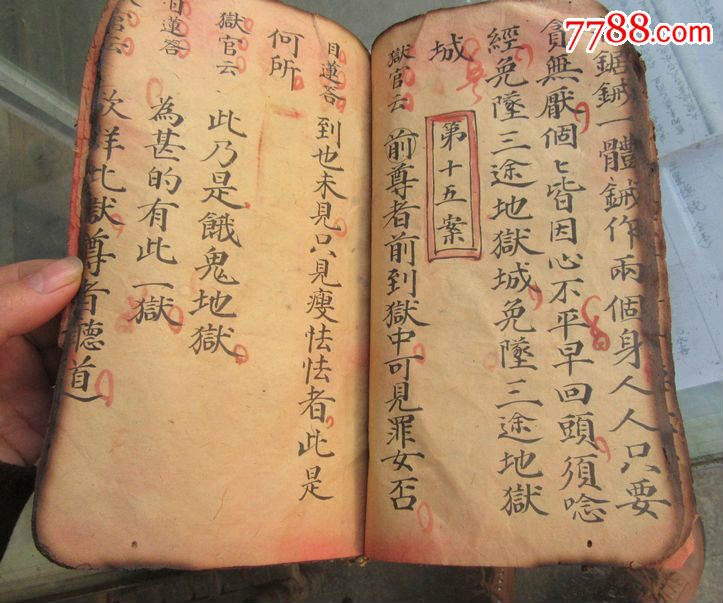 7788.com
鋸鋮一體鋮作兩個身人人只要
貪無厭個〻皆因心不平早回頭須唸
經免墜三途地獄城免墜三途地獄
城
第十五案
獄官云 前尊者前到獄中可見罪女否
目蓮答 到也未見只見瘦怯怯者此是
何所
獄官云 此乃是餓鬼地獄
目蓮答 為甚的有此一獄
官云 次祥此獄尊者德道